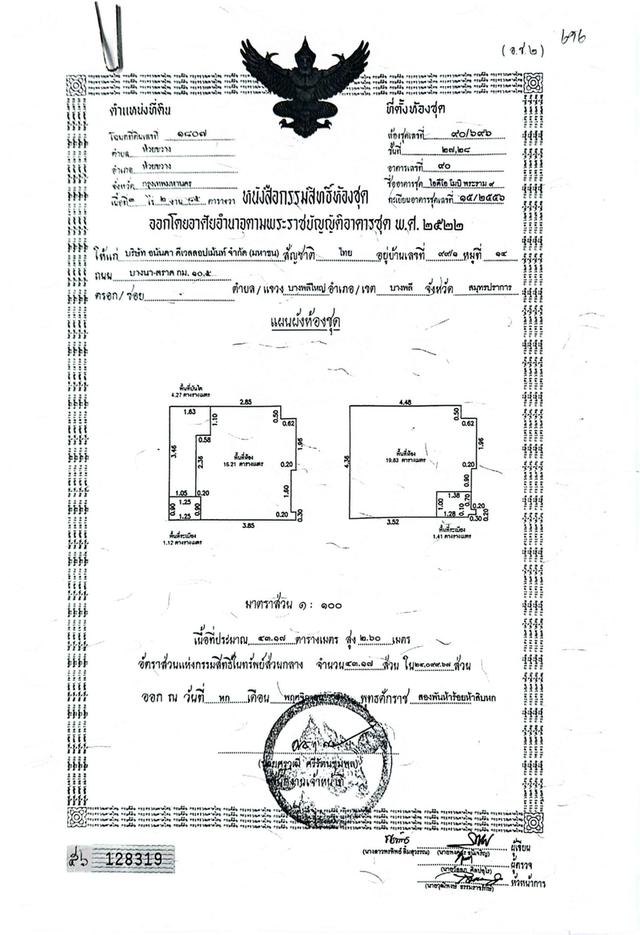 ๖๗๖
(อ.ช.๒)
ตำแหน่งที่ดิน
โฉนดที่ดินเลขที่ ๑๘๐๗
ตำบล ห้วยขวาง
อำเภอ ห้วยขวาง
จังหวัด กรุงเทพมหานคร
เนื้อที่ ๓ ไร่ ๒ งาน ๘๕ ตารางวา
ที่ตั้งห้องชุด
ห้องชุดเลขที่ ๙๐/๖๙๖
ชั้นที่ ๒๗,๒๘
อาคารเลขที่ ๙๐
ชื่ออาคารชุด ไอดีโอ โมบิ พระราม ๙
ทะเบียนอาคารชุดเลขที่ ๑๕/๒๕๕๖
หนังสือกรรมสิทธิ์ห้องชุด
ออกโดยอาศัยอำนาจตามพระราชบัญญัติอาคารชุด พ.ศ. ๒๕๒๒
ให้แก่ บริษัท อนันดา ดีเวลลอปเม้นท์ จำกัด (มหาชน) สัญชาติ ไทย อยู่บ้านเลขที่ ๙๙/๑ หมู่ที่ ๑๔
ถนน บางนา-ตราด กม. ๑๐.๕
ตรอก/ซอย ตำบล/แขวง บางพลีใหญ่ อำเภอ/เขต บางพลี จังหวัด สมุทรปราการ
แผนผังห้องชุด
พื้นที่บันได
4.27 ตารางเมตร
1.63
2.85
0.50
0.62
1.10
0.58
3.46
2.36
1.96
พื้นที่ห้อง
16.21 ตารางเมตร
0.20
1.50
1.05
0.20
1.25
0.90
0.90
1.25
3.85
0.20
0.30
พื้นที่ระเบียง
1.12 ตารางเมตร
4.48
0.50
0.62
4.36
1.96
พื้นที่ห้อง
19.83 ตารางเมตร
0.20
0.90
1.38
0.70
1.00
0.10
0.20
1.28
0.30
0.20
3.52
พื้นที่ระเบียง
1.41 ตารางเมตร
มาตราส่วน ๑ : ๑๐๐
เนื้อที่ประมาณ ๔๓.๑๗ ตารางเมตร สูง ๒.๖๐ เมตร
อัตราส่วนแห่งกรรมสิทธิ์ในทรัพย์ส่วนกลาง จำนวน ๔๓.๑๗ ส่วน ใน ๒๔,๐๙๙.๖๗ ส่วน
ออก ณ วันที่ หก เดือน พุทธศักราช สองพันห้าร้อยห้าสิบหก
เจ้าพนักงานเจ้าหน้าที่
128319
ผู้เขียน
ผู้ตรวจ
หัวหน้าการ